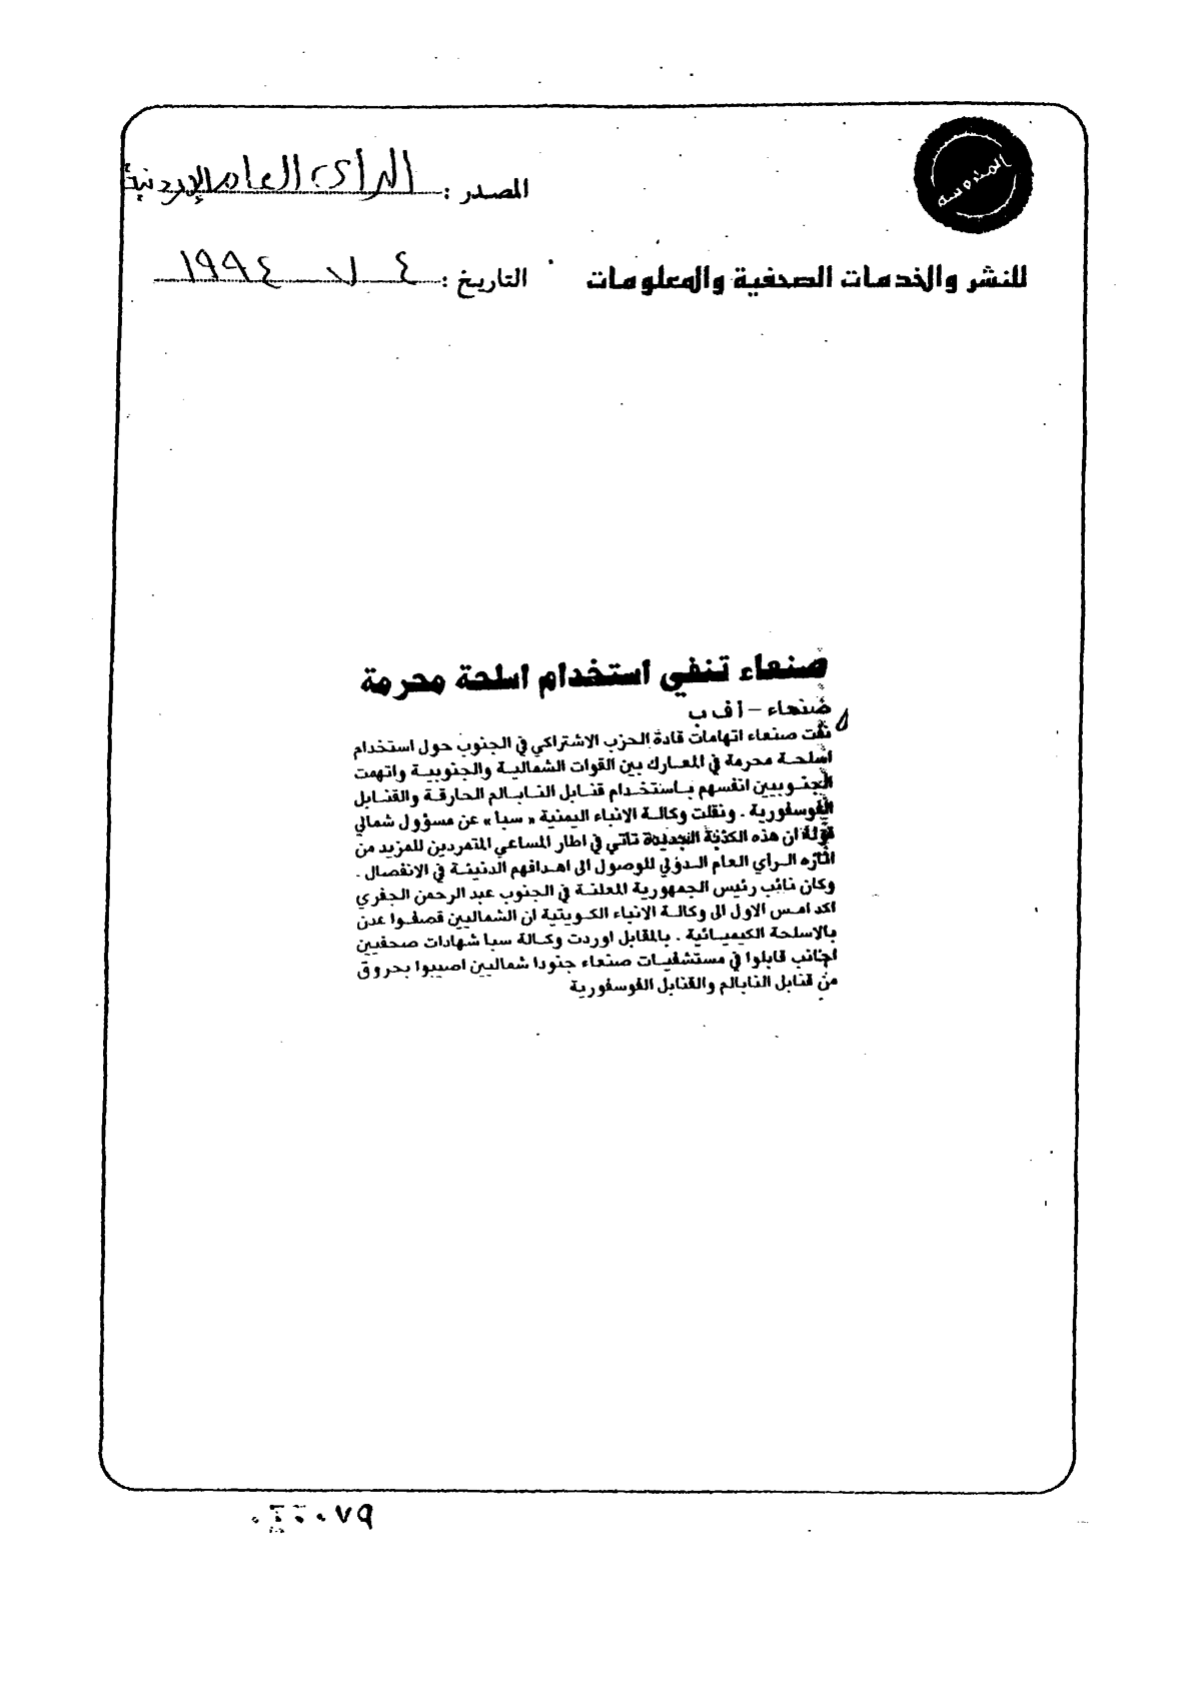 المصدر : الرأى العام الاردنية
للنشر والخدمات الصحفية والمعلومات
التاريخ : ٤ ٧ ١٩٩٤
صنعاء تنفي استخدام اسلحة محرمة
صنعاء – أ ف ب
نفت صنعاء اتهامات قادة الحزب الاشتراكي في الجنوب حول استخدام
اسلحة محرمة في المعارك بين القوات الشمالية والجنوبية واتهمت
الجنوبيين انفسهم باستخدام قنابل النابالم الحارقة والقنابل
الفوسفورية . ونقلت وكالة الانباء اليمنية « سبا » عن مسؤول شمالي
قوله ان هذه الكذبة الجديدة تأتي في اطار المساعي المتمردين للمزيد من
اثاره الرأي العام الدولي للوصول الى اهدافهم الدنيئة في الانفصال .
وكان نائب رئيس الجمهورية المعلنة في الجنوب عبد الرحمن الجفري
اكد امس الاول الى وكالة الانباء الكويتية ان الشماليين قصفوا عدن
بالاسلحة الكيميائية . بالمقابل اوردت وكالة سبا شهادات صحفيين
اجانب قابلوا في مستشفيات صنعاء جنودا شماليين اصيبوا بحروق
من قنابل النابالم والقنابل الفوسفورية